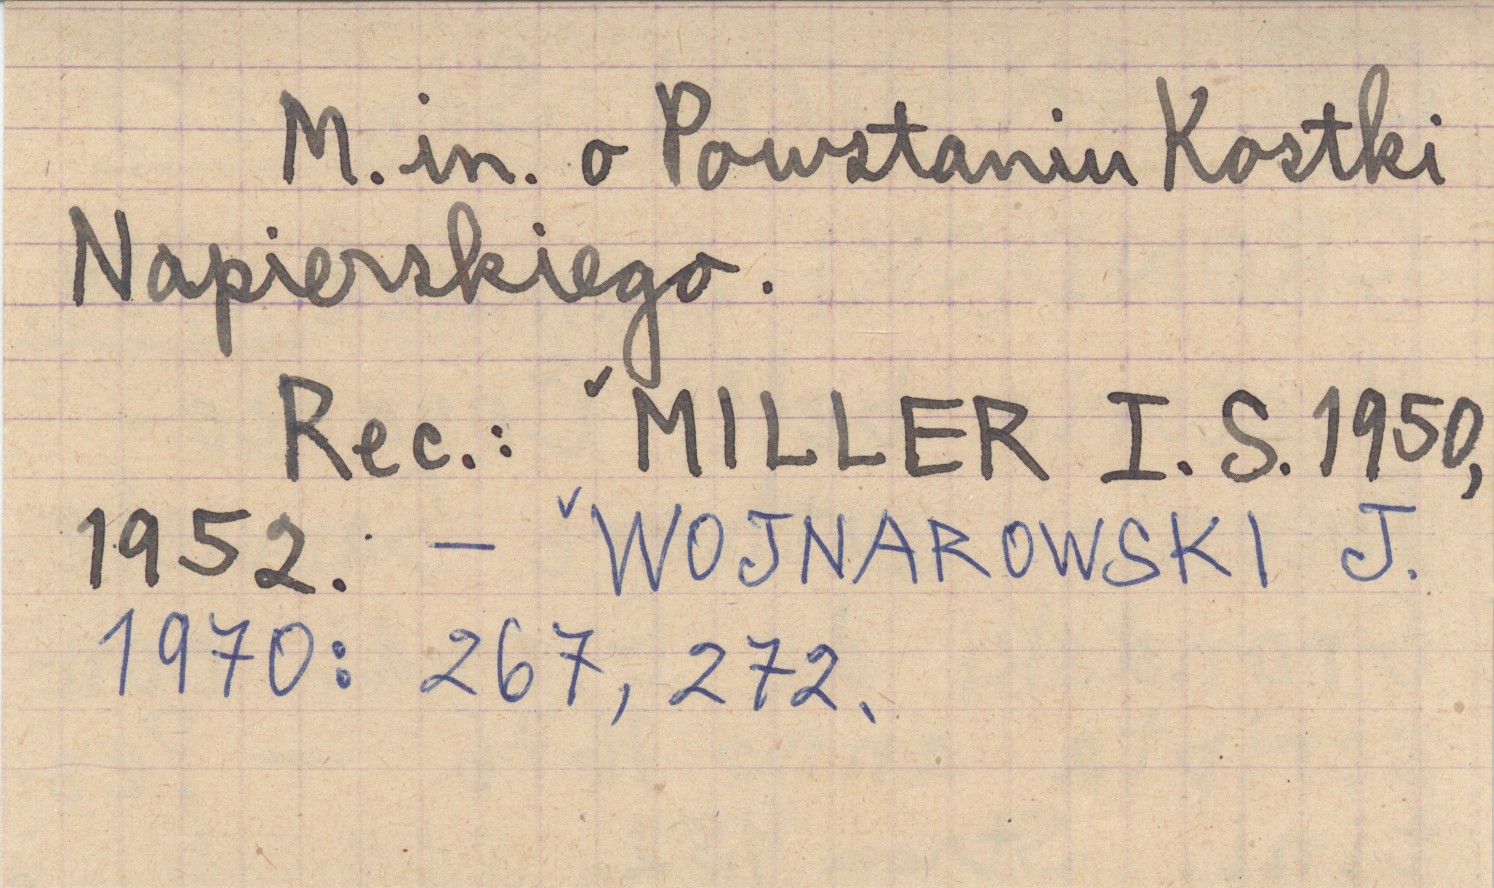 M. in. o Powstaniu Kostki
Napierskiego.
Rec.: ˇMILLER I. S. 1950,
1952. – ˇWOJNAROWSKI J.
1970: 267, 272.